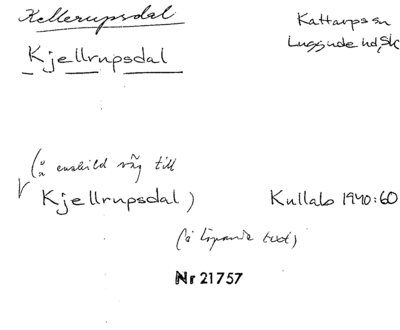 Kellerupsdal
Kattarps sn
Kjellrupsdal
Luggude hd, Sk
(å enskild väg till
Kjellrupsdal)
Kullabo 1940:60
(i löpande text)
Nr 21757